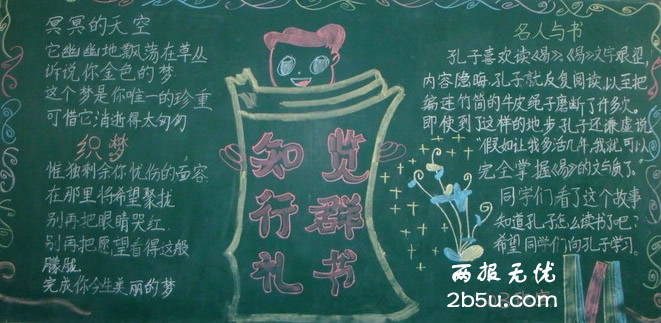 冥冥的天空
它幽幽地飘荡在草丛
诉说你金色的梦
这个梦是你唯一的珍重
可惜它消逝得太匆匆
织梦
惟独剩余你忧伤的面容
在那里将希望聚拢
别再把眼睛哭红
别再把愿望看得这般
朦胧
完成你今生美丽的梦
知行礼
览群书
名人与书
孔子喜欢读《易》,《易》文字艰涩,
内容隐晦,孔子就反复阅读,以至把
编连竹简的牛皮绳子磨断了许多次。
即使到了这样的地步,孔子还谦虚说:
"假如让我多活几年,我就可以
完全掌握《易》的文与质了。"
同学们看了这个故事
知道孔子怎么读书了吧?
希望同学们向孔子学习。
两报无忧
2b5u.com